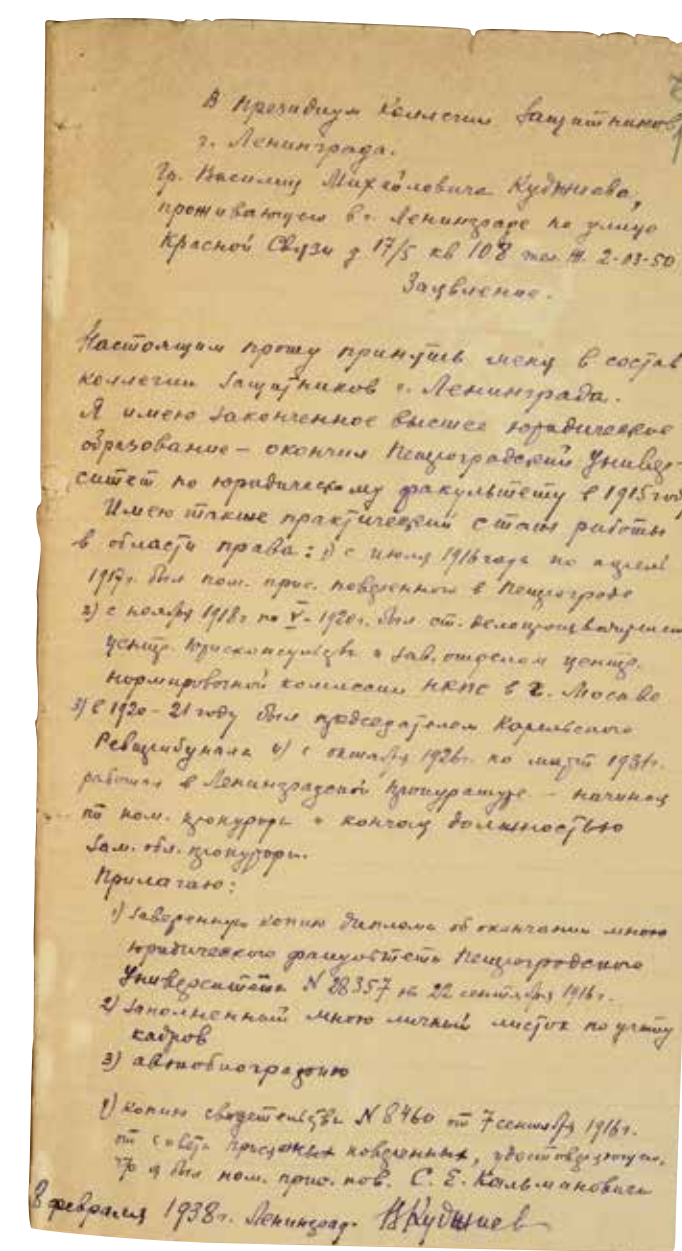 В Президиум Коллегии Защитников
г. Ленинграда.
Гр. Василия Михайловича Куджиева,
проживающего в г. Ленинграде по улице
Красной Связи д 17/5 кв 108 тел. Ж. 2-03-50
Заявление.
Настоящим прошу принять меня в состав
коллегии защитников г. Ленинграда.
Я имею законченное высшее юридическое
образование – окончил Петроградский Универ-
ситет по юридическому факультету в 1915 году
Имею также практический стаж работы
в области права: 1) с июля 1916 года по апрель
1917г. был пом. прис. поверенного в Петрограде
2) с ноября 1918г по V-1920г. был ст. делопроизводителем
центр. юрисконсульства и зав. отделом центр.
нормировочной комиссии НКПС в г. Москве
3) в 1920-21 году был председателем Карельского
Ревтрибунала 4) с октября 1926г. по март 1931г.
работал в Ленинградской прокуратуре – начиная
от пом. прокурора и кончая должностью
зам. обл. прокурора.
Прилагаю:
1) заверенную копию диплома об окончании мною
юридического факультета Петроградского
Университета N 28357 от 22 сентября 1916г.
2) заполненный мною личный листок по учету
кадров
3) автобиографию
4) копию свидетельства N 8460 от 7 сентября 1916г.
от совета присяжных поверенных, удостоверяющую,
что я был пом. прис. пов. С. Е. Кальмановича
8 февраля 1938г. Ленинград. ВКуджиев